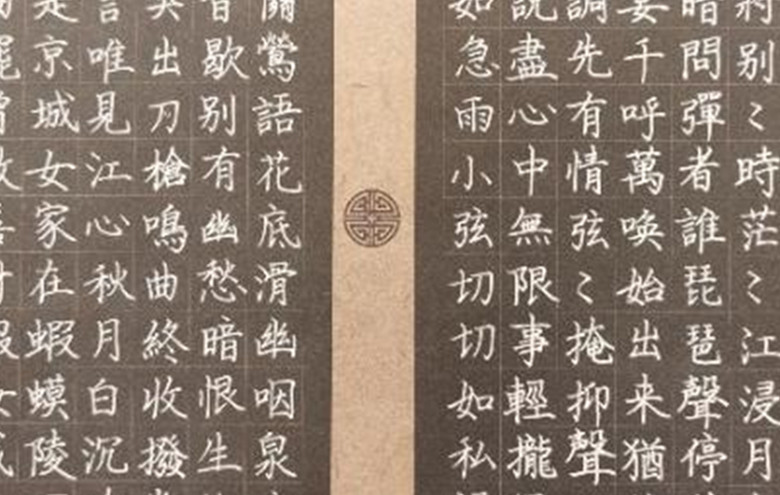 别〻時茫〻江浸月
暗問彈者誰琵琶聲停
千呼萬唤始出来猶
調先有情弦〻掩抑聲
説盡心中無限事輕攏
如急雨小弦切切如私
關鶯語花底滑幽咽泉
歇别有幽愁暗恨生
突出刀槍鳴曲終收撥
言唯見江心秋月白沉
是京城女家在蝦蟆陵